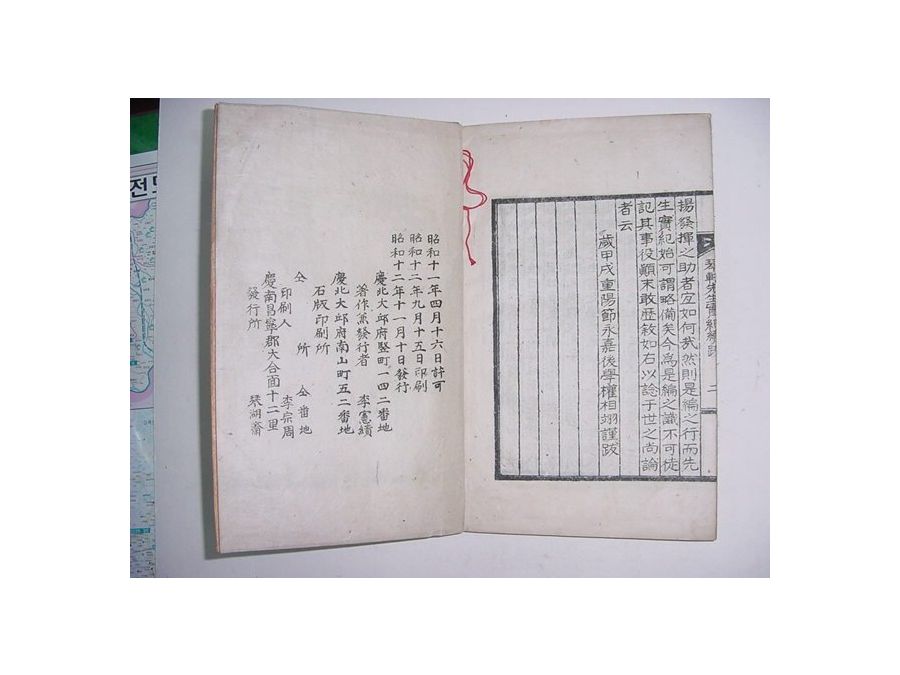 揚發揮之助者宜如何哉然則是編之行而先
生實紀始可謂略備矣今爲是編之識不可徒
記其事役顛末敢歷敘如右以諗于世之尚論
者云
歲甲戌重陽節永嘉後學權相翊謹跋
昭和十一年四月十六日許可
昭和十二年九月十五日印刷
昭和十二年十一月十日發行
慶北大邱府竪町一四二番地
著作兼發行者 李憲績
慶北大邱府南山町五二番地
石版印刷所
仝所 仝番地
印刷人 李宗周
慶南昌寧郡大合面十二里
發行所 琴湖齋
전도